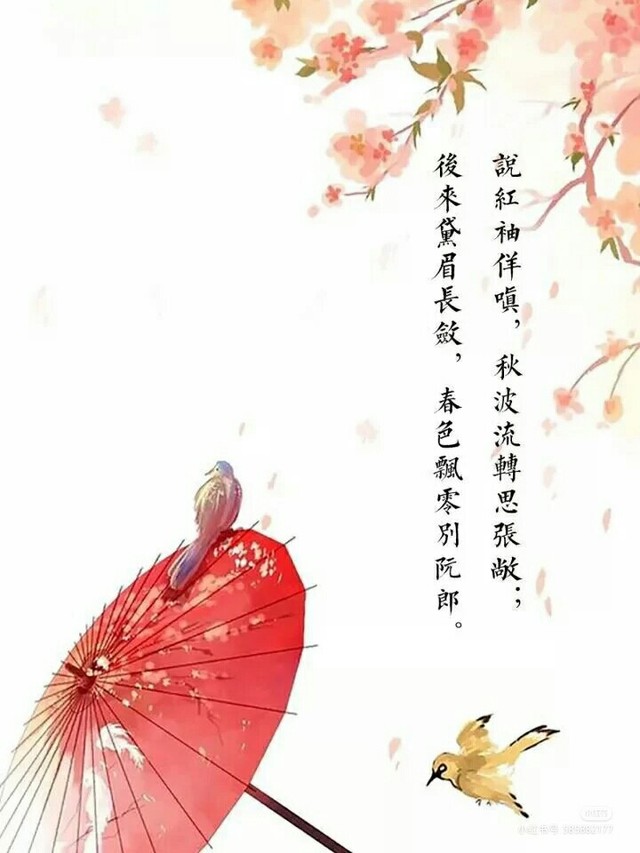 說紅袖佯嗔，秋波流轉思張敞；
後來黛眉長斂，春色飄零別阮郎。
小红书